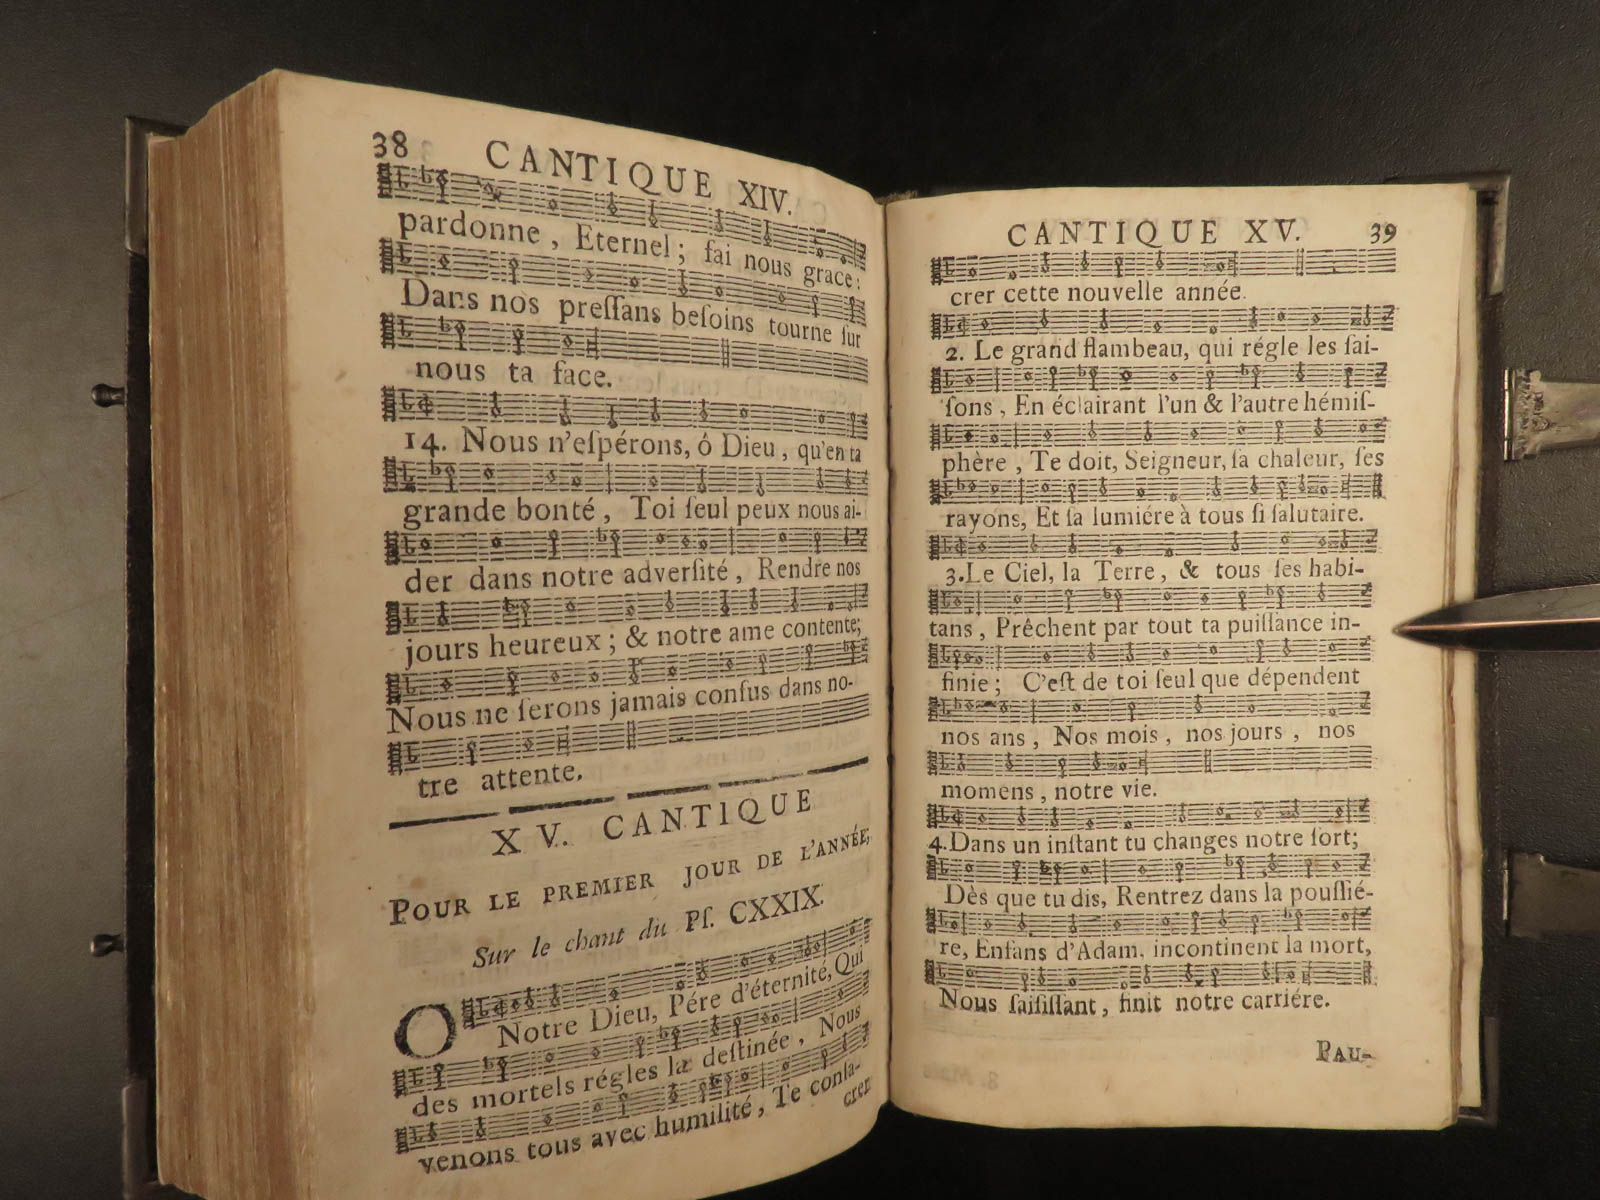 38 CANTIQUE XIV.
pardonne, Eternel; fai nous grace:
Dans nos preſſans beſoins tourne ſur
nous ta face.
14. Nous n'eſpérons, ô Dieu, qu'en ta
grande bonté, Toi ſeul peux nous ai-
der dans notre adverſité, Rendre nos
jours heureux; & notre ame contente;
Nous ne ſerons jamais confus dans no-
tre attente.
XV. CANTIQUE
POUR LE PREMIER JOUR DE L'ANNÉE,
Sur le chant du Pſ. CXXIX.
O Notre Dieu, Pére d'éternité, Qui
des mortels régles la deſtinée, Nous
venons tous avec humilité, Te conſa-
crer
CANTIQUE XV. 39
crer cette nouvelle année.
2. Le grand flambeau, qui régle les ſai-
ſons, En éclairant l'un & l'autre hémiſ-
phère, Te doit, Seigneur, ſa chaleur, ſes
rayons, Et ſa lumiére à tous ſi ſalutaire.
3. Le Ciel, la Terre, & tous ſes habi-
tans, Prêchent par tout ta puiſſance in-
finie; C'eſt de toi ſeul que dépendent
nos ans, Nos mois, nos jours, nos
momens, notre vie.
4. Dans un inſtant tu changes notre ſort;
Dès que tu dis, Rentrez dans la pouſſié-
re, Enfans d'Adam, incontinent la mort,
Nous ſaiſiſſant, finit notre carriére.
PAU-